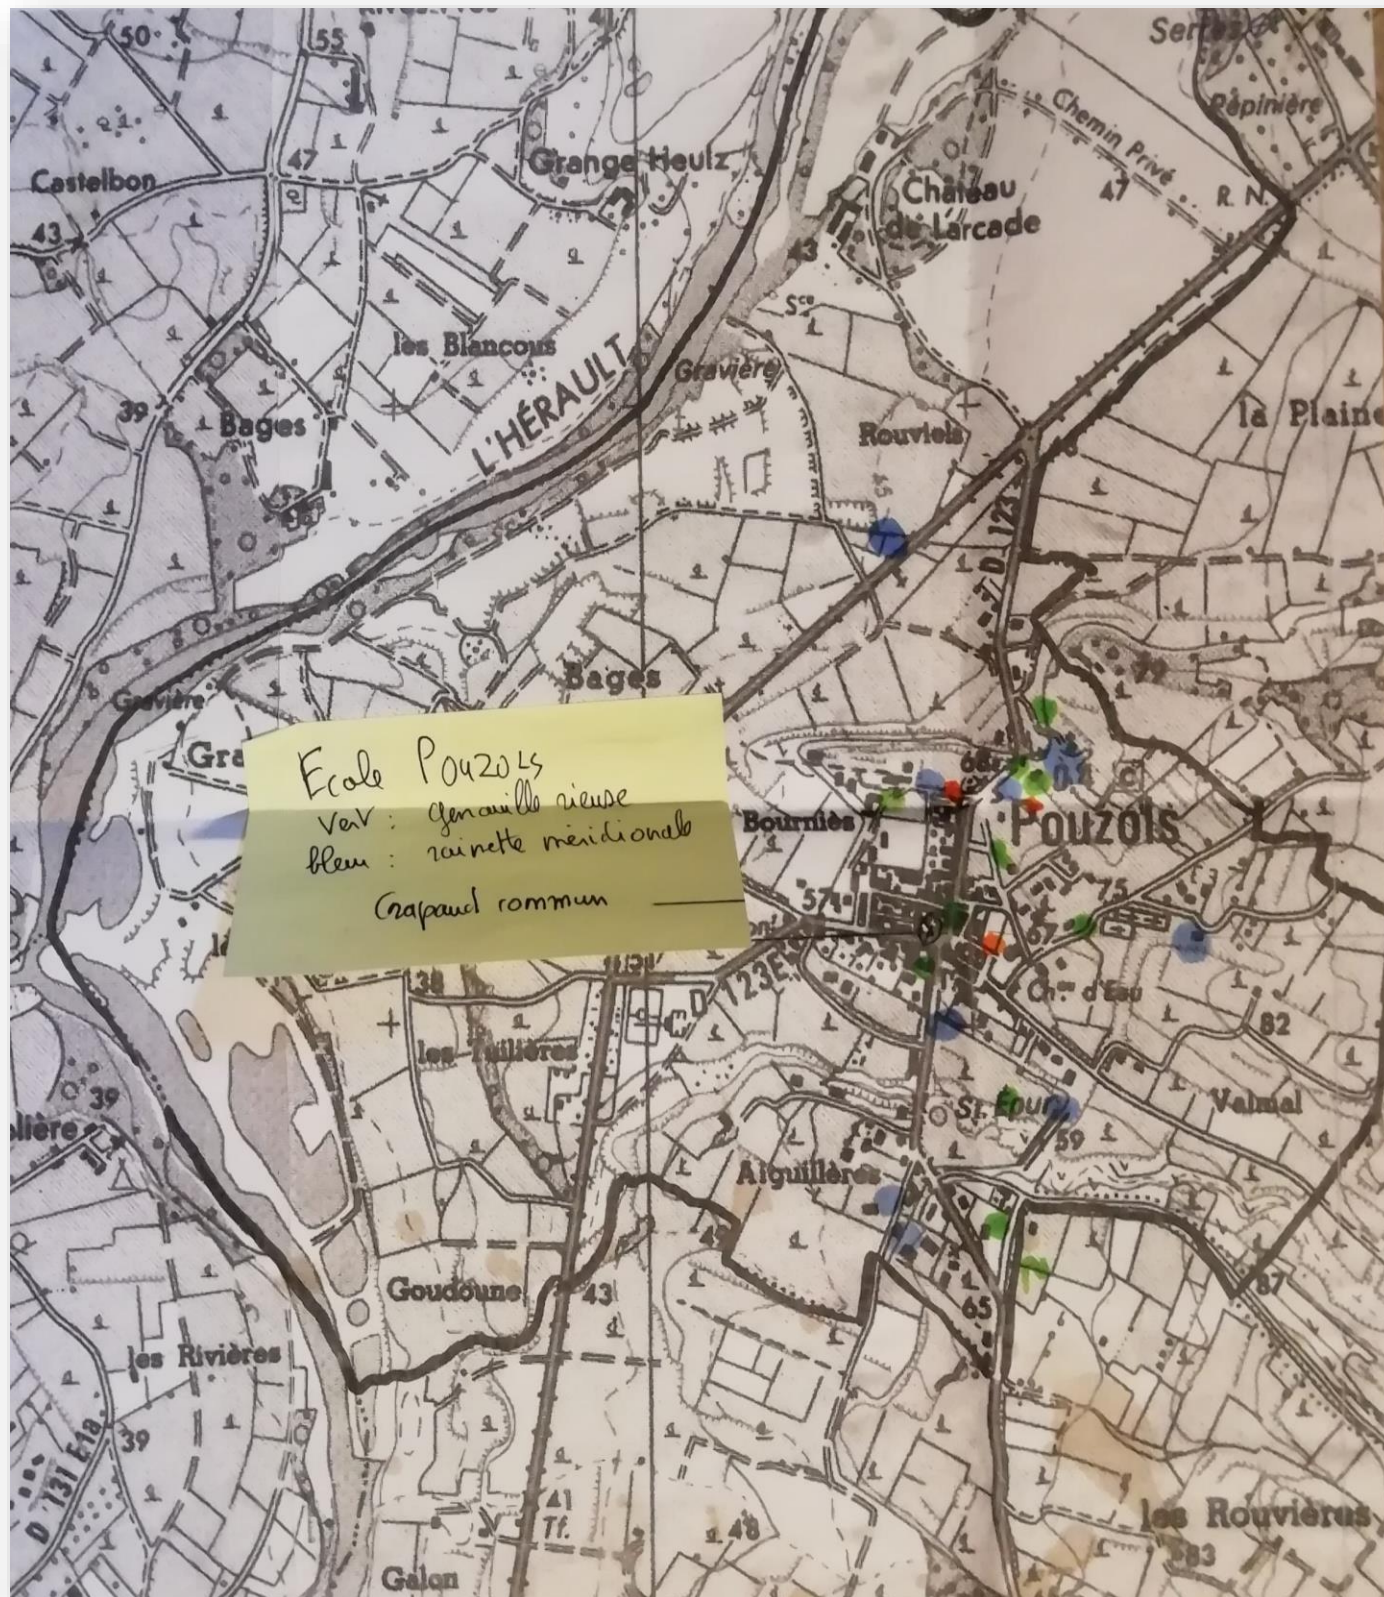 50
55
Serres
Pépinière
Castelbon
47
Grange Heulz
Chemin Privé
47
R. N.
Château
de Larcade
43
43
Sce
les Blancous
L'HÉRAULT
Gravière
39
Bages
Rouviels
la Plaine
45
D 123
Bages
79
Gravière
Gra
Ecole Pouzols
Vert : grenouille rieuse
bleu : rainette méridionale
Crapaud commun
68
Bourniès
Pouzols
57
75
67
D 123E
Chau d'Eau
38
82
les Tuilières
39
lière
St. Epur
Valmal
59
Aiguillères
49
Goudoune
43
65
87
les Rivières
D 131 E1a
39
41
Tf.
48
les Rouvières
83
Galon